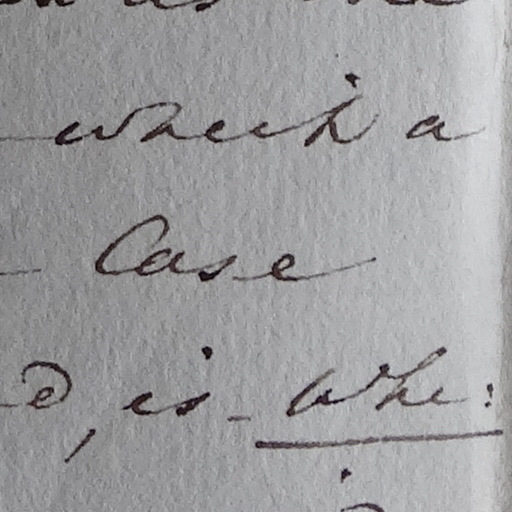 which a
Case
d, is - Whe: